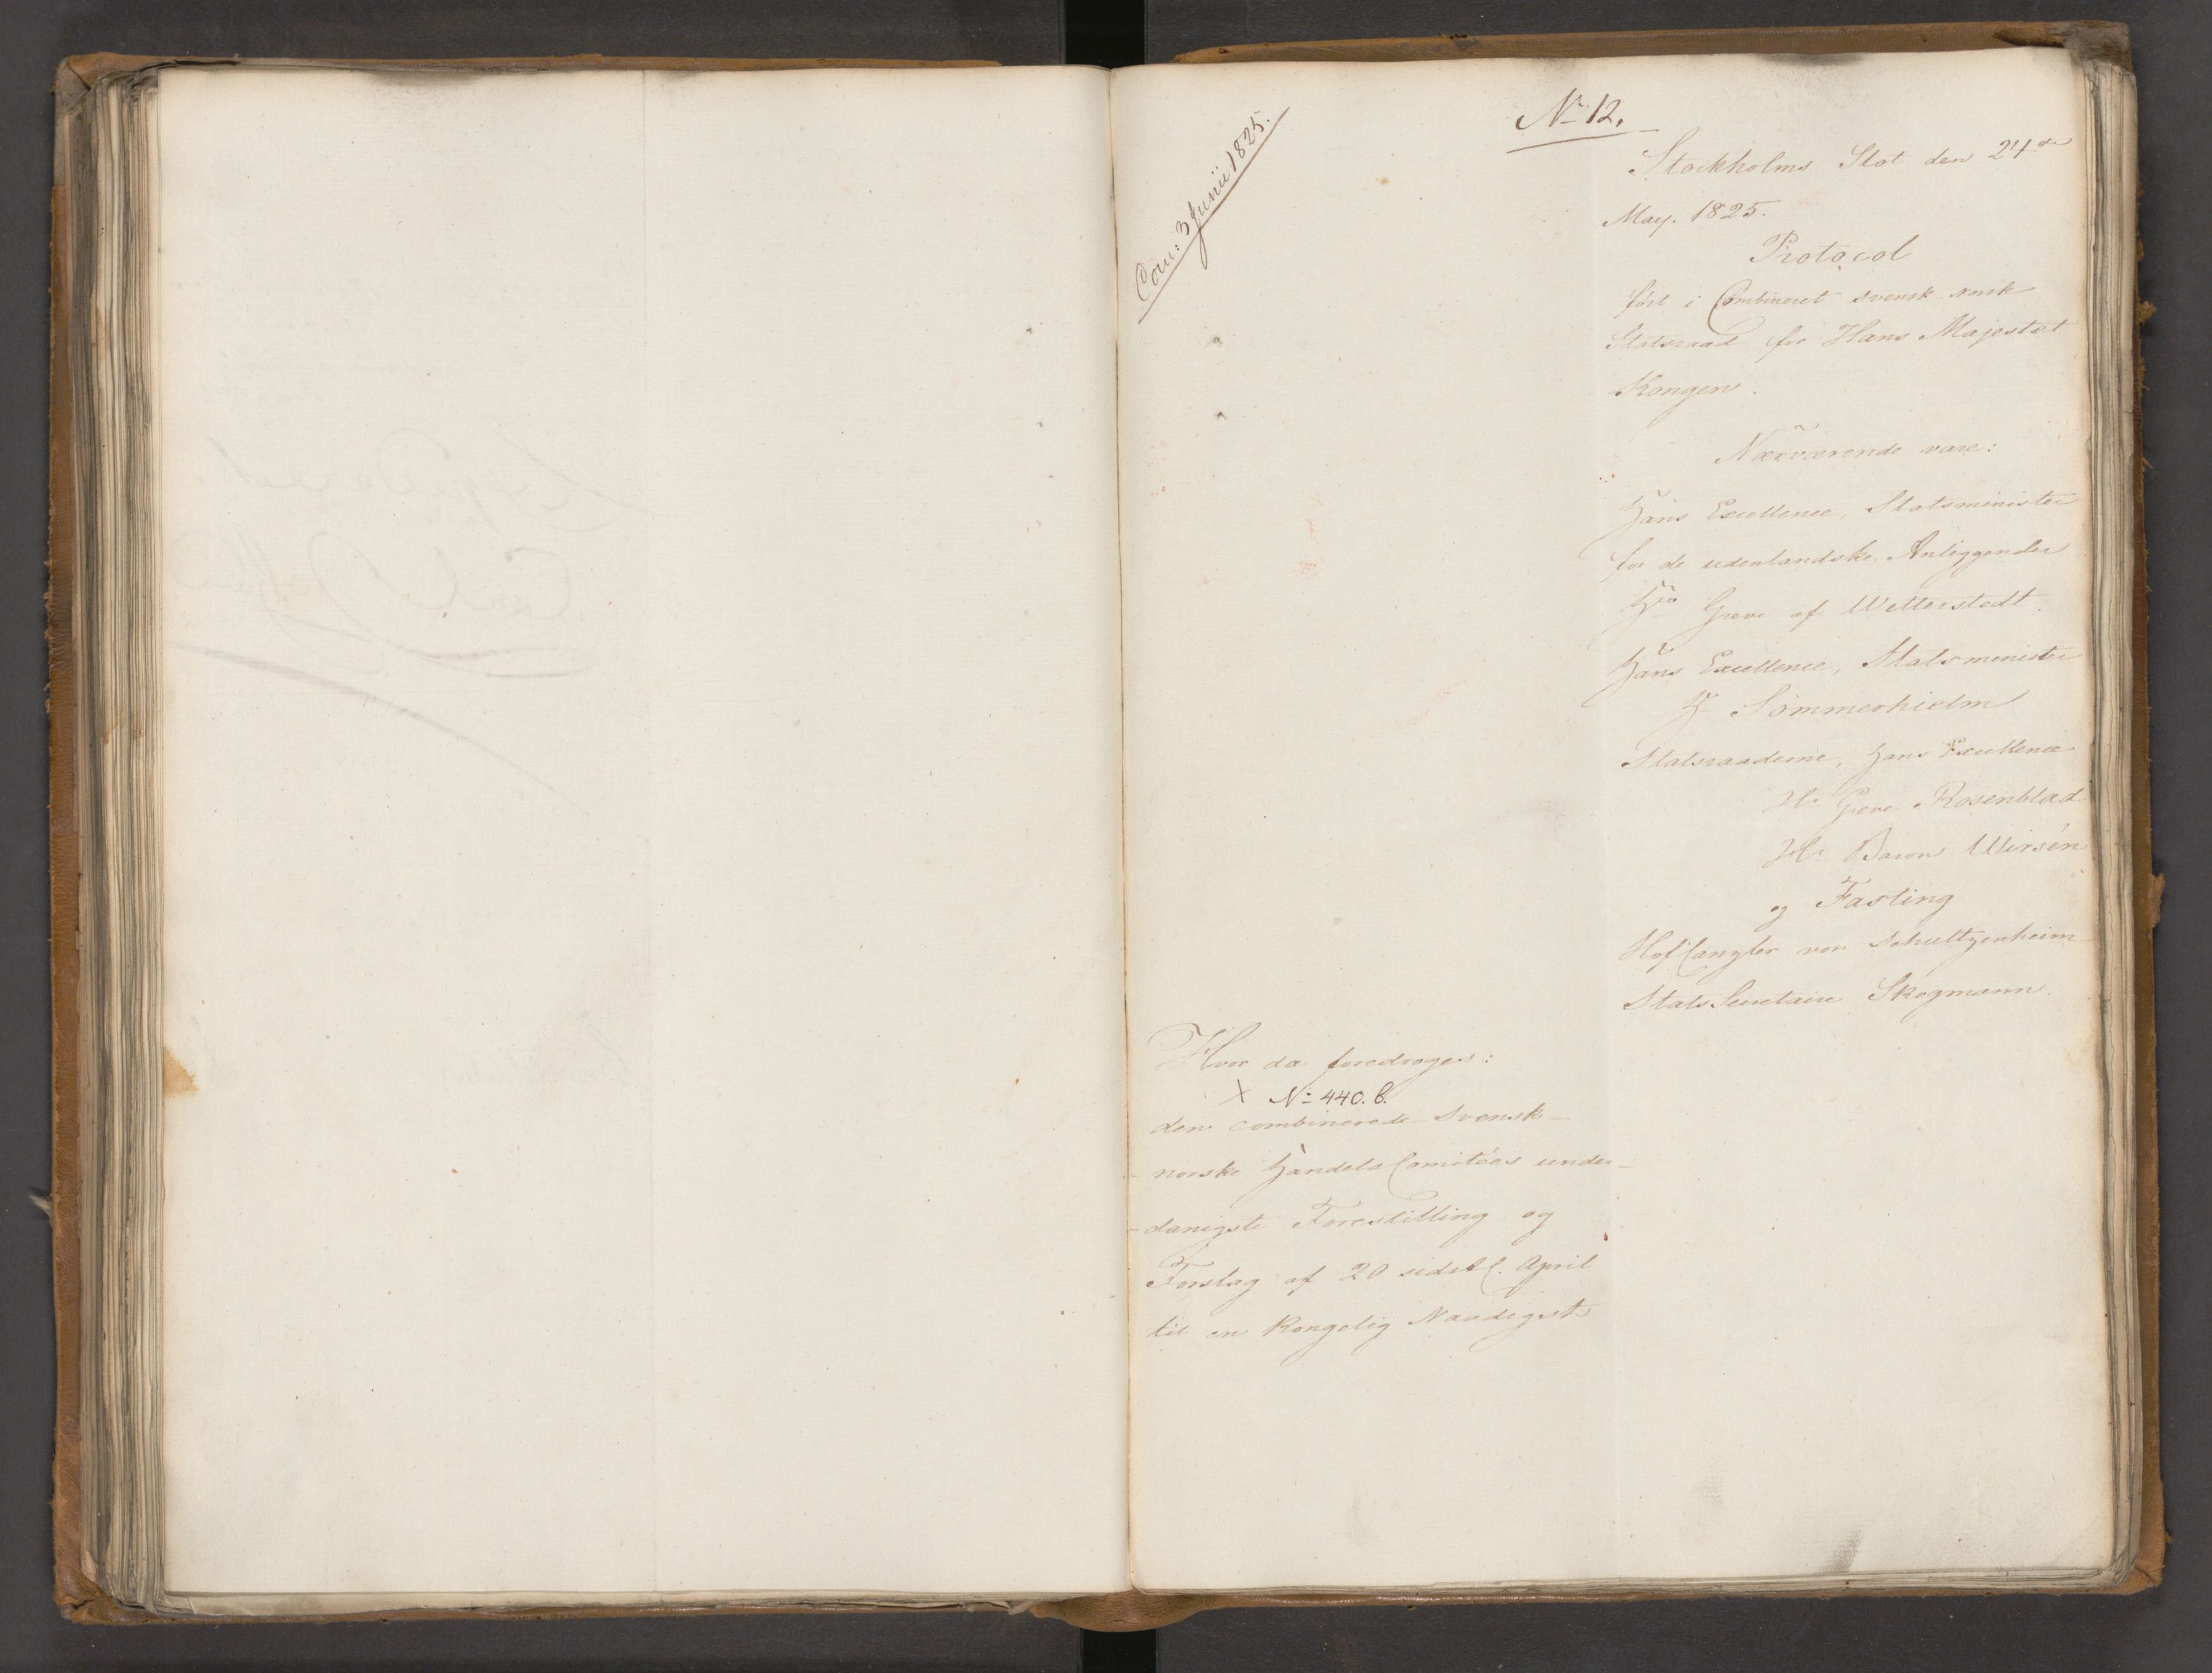 No 12.
Com: 3 Junii 1825.
Stockholms Slot den 24de
May. 1825.
Protocol
ført i Combineret svensk-norsk
Statsraad for Hans Majestæt
Kongen.
Nærværende vare:
Hans Excellence, Statsminister
for de udenlandske Anliggender
Hr Greve af Wetterstedt.
Hans Excellence, Statsminister
Hr Sömmerhielm
Statsraaderne, Hans Excellence
Hr Greve Rosenblad
Hr Baron Wirsén
og Fasting
HofCanzler von Schultzenheim
StatsSecretaire Skogmann.
Hvor da foredroges:
X No 440.C.
den combinerede Svensk-
norske Handels Comitées under-
-danigste Forestilling og
Forslag af 20 sidstl. April
til en Kongelig Naadigst